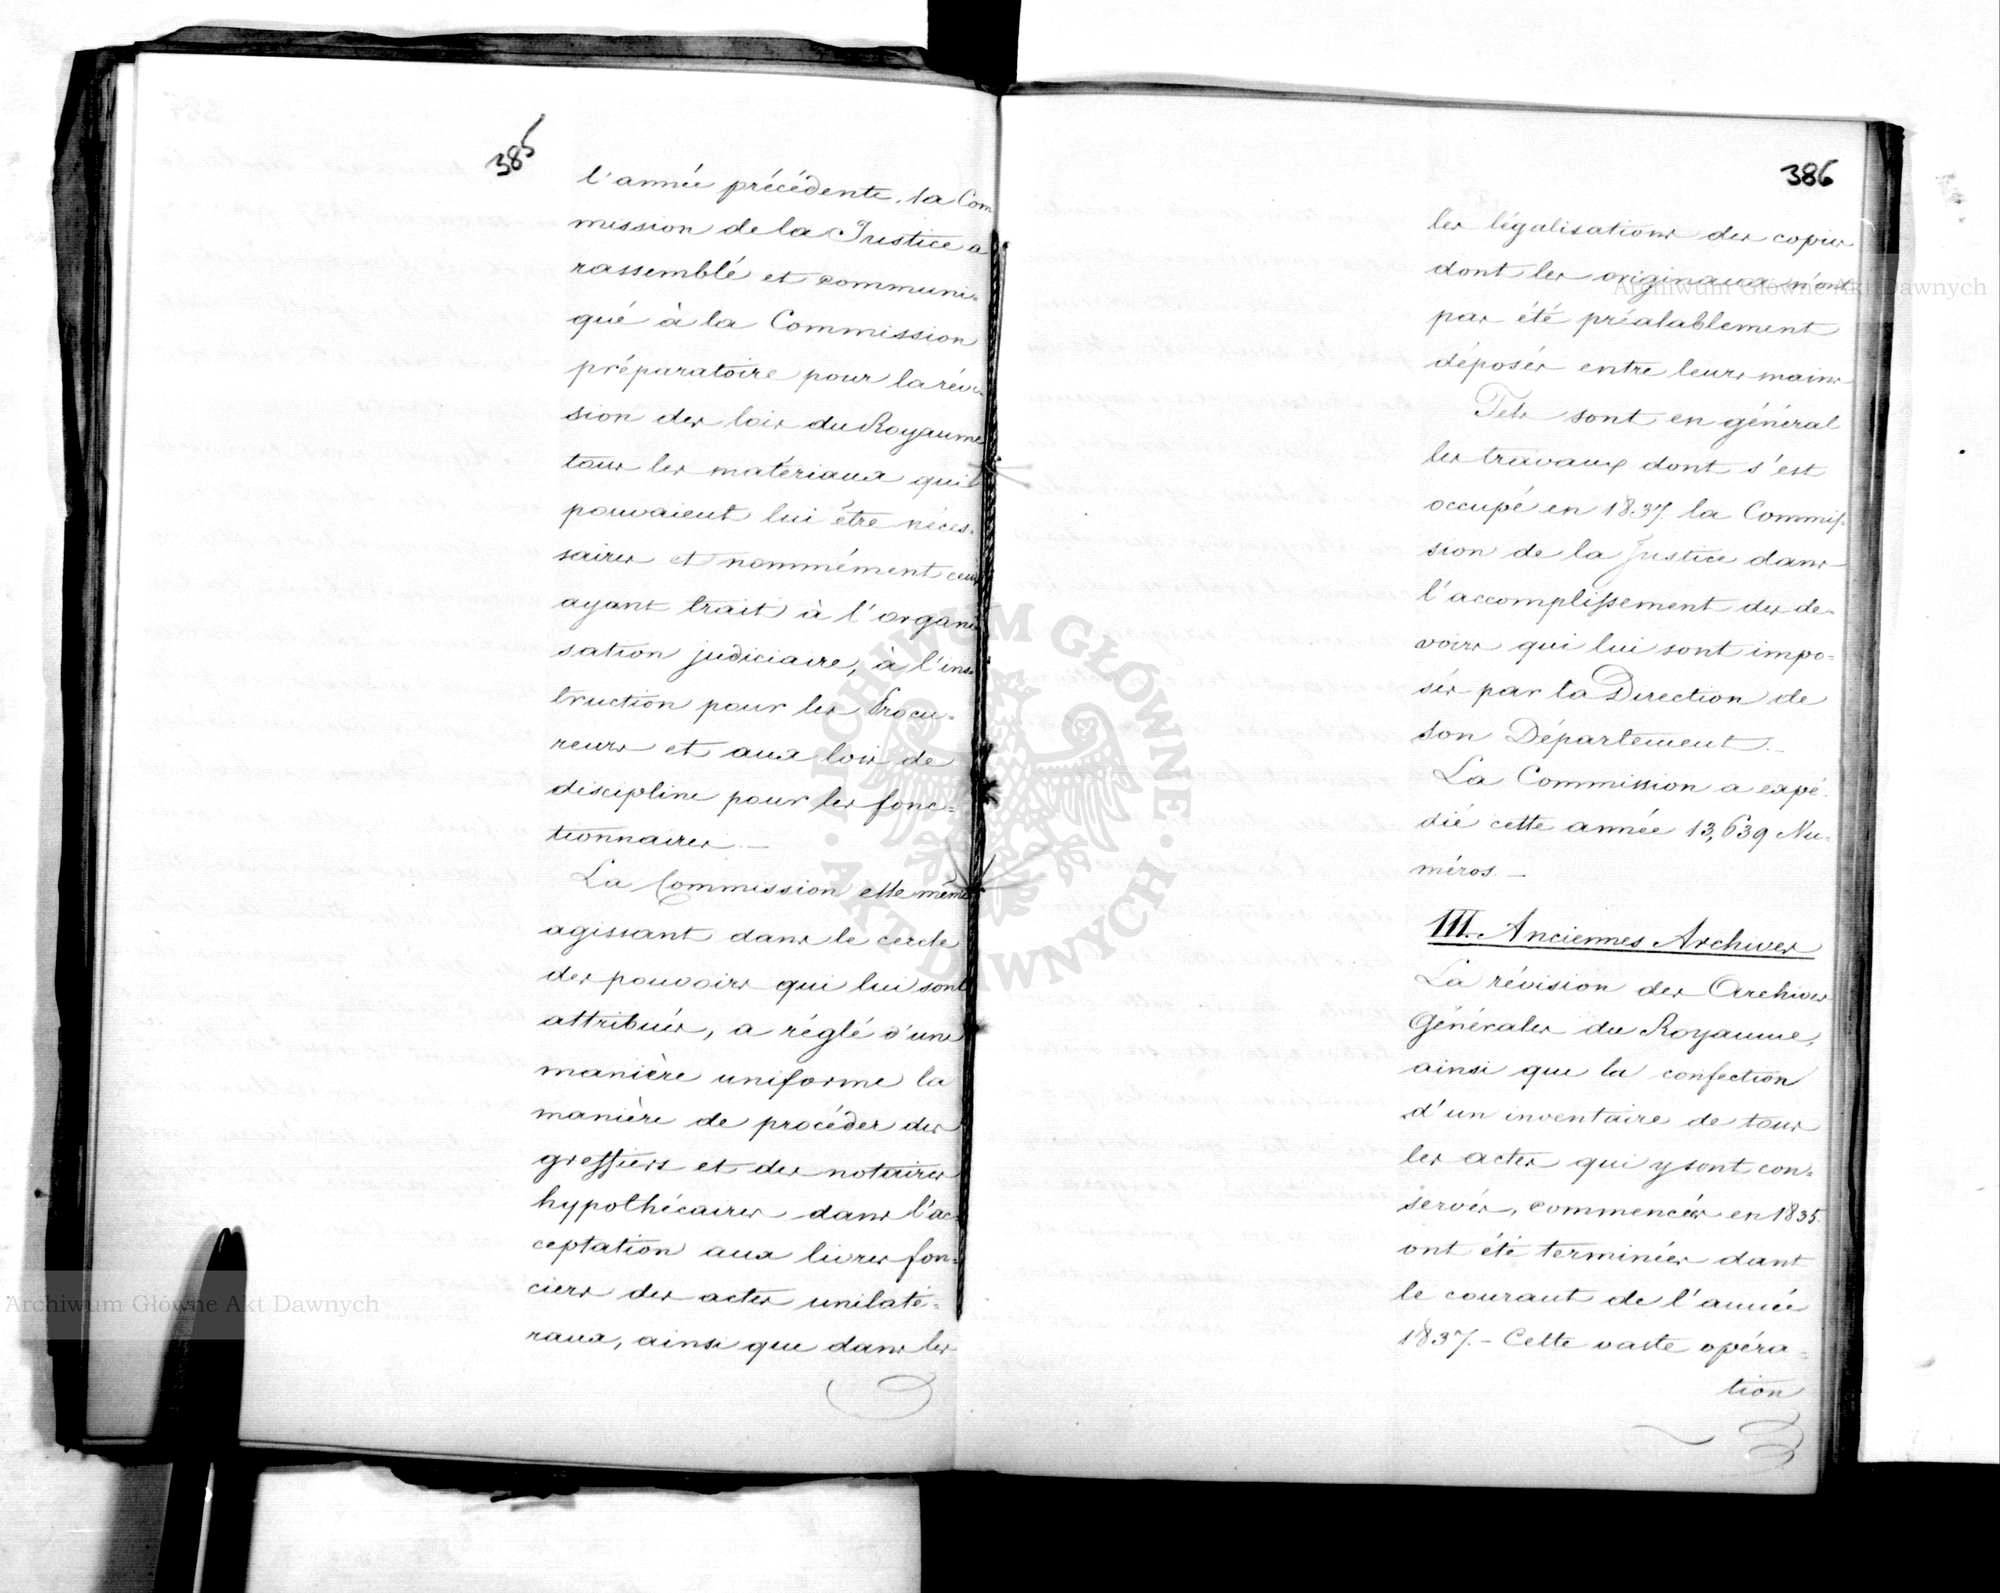 385
l'année précédente, la Com
mission de la Justice a
rassemblé et communi-
qué à la Commission
préparatoire pour la révi-
sion des lois du Royaume
tous les matériaux qui
pouvaient lui être néces-
saires et nommément ceux
ayant trait à l'organi
sation judiciaire, à l'ins-
truction pour les Procu-
reurs et aux lois de
discipline pour les fonc-
tionnaires. –
La Commission elle même
agissant dans le cercle
des pouvoirs qui lui sont
attribués, a réglé d'une
manière uniforme la
manière de procéder des
greffiers et des notaires
hypothécaires dans l'ac-
ceptation aux livres fon-
ciers des actes unilaté-
raux, ainsi que dans les
386
les légalisations des copies
dont les originaux n'ont
pas été préalablement
déposés entre leurs mains
Tels sont en général
les travaux dont s'est
occupé en 1837. la Commis-
sion de la Justice dans
l'accomplissement des de-
voirs qui lui sont impo-
sés par la Direction de
son Département. –
La Commission a expé-
dié cette année 13,639 Nu-
méros. –
III. Anciennes Archives
La révision des Archives
Générales du Royaume,
ainsi que la confection
d'un inventaire de tous
les actes qui y sont con-
servés, commencées en 1835.
ont été terminées dant
le courant de l'année
1837. – Cette vaste opéra-
tion
Archiwum Główne Akt Dawnych
Archiwum Główne Akt Dawnych
ARCHIWUM GŁÓWNE · AKT DAWNYCH ·